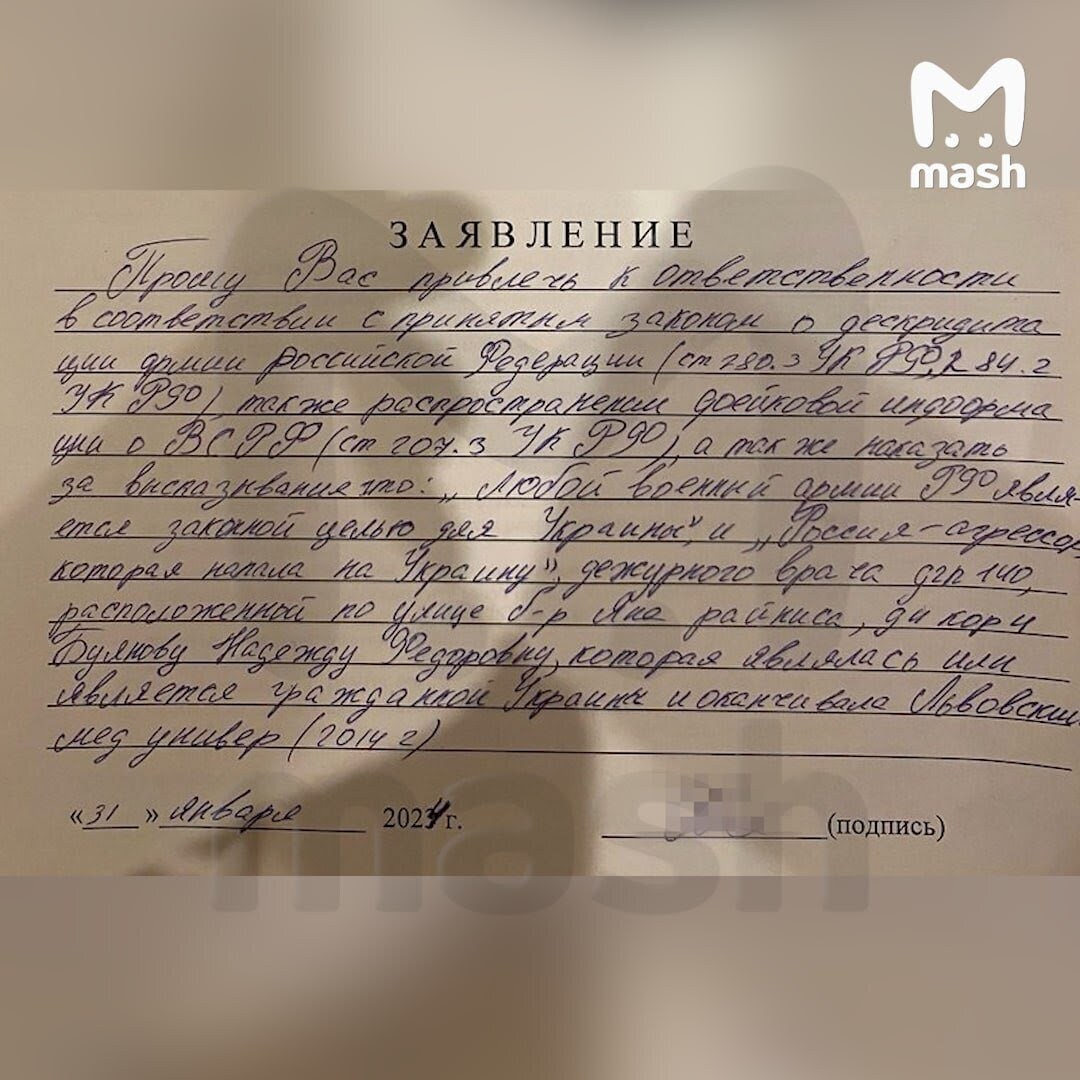 mash
ЗАЯВЛЕНИЕ
Прошу Вас привлечь к ответственности
в соответствии с принятым законом о дескридита
ции армии Российской Федерации (ст 280.3 УК РФ, 284.2
УК РФ), также распространении фейковой информа
ции о ВС РФ (ст 207.3 УК РФ), а так же наказать
за высказывание что: „Любой военный армии РФ явля-
ется законной целью для Украины", и „Россия-агрессор
которая напала на Украину", дежурного врача дгп 140,
расположенной по улице б-р Яна райниса,
Буянову Надежду Федоровну, которая являлась или
является гражданкой Украины и оканчивала Львовский
мед универ (2014 г)
«31» января 2024 г.
(подпись)
mash